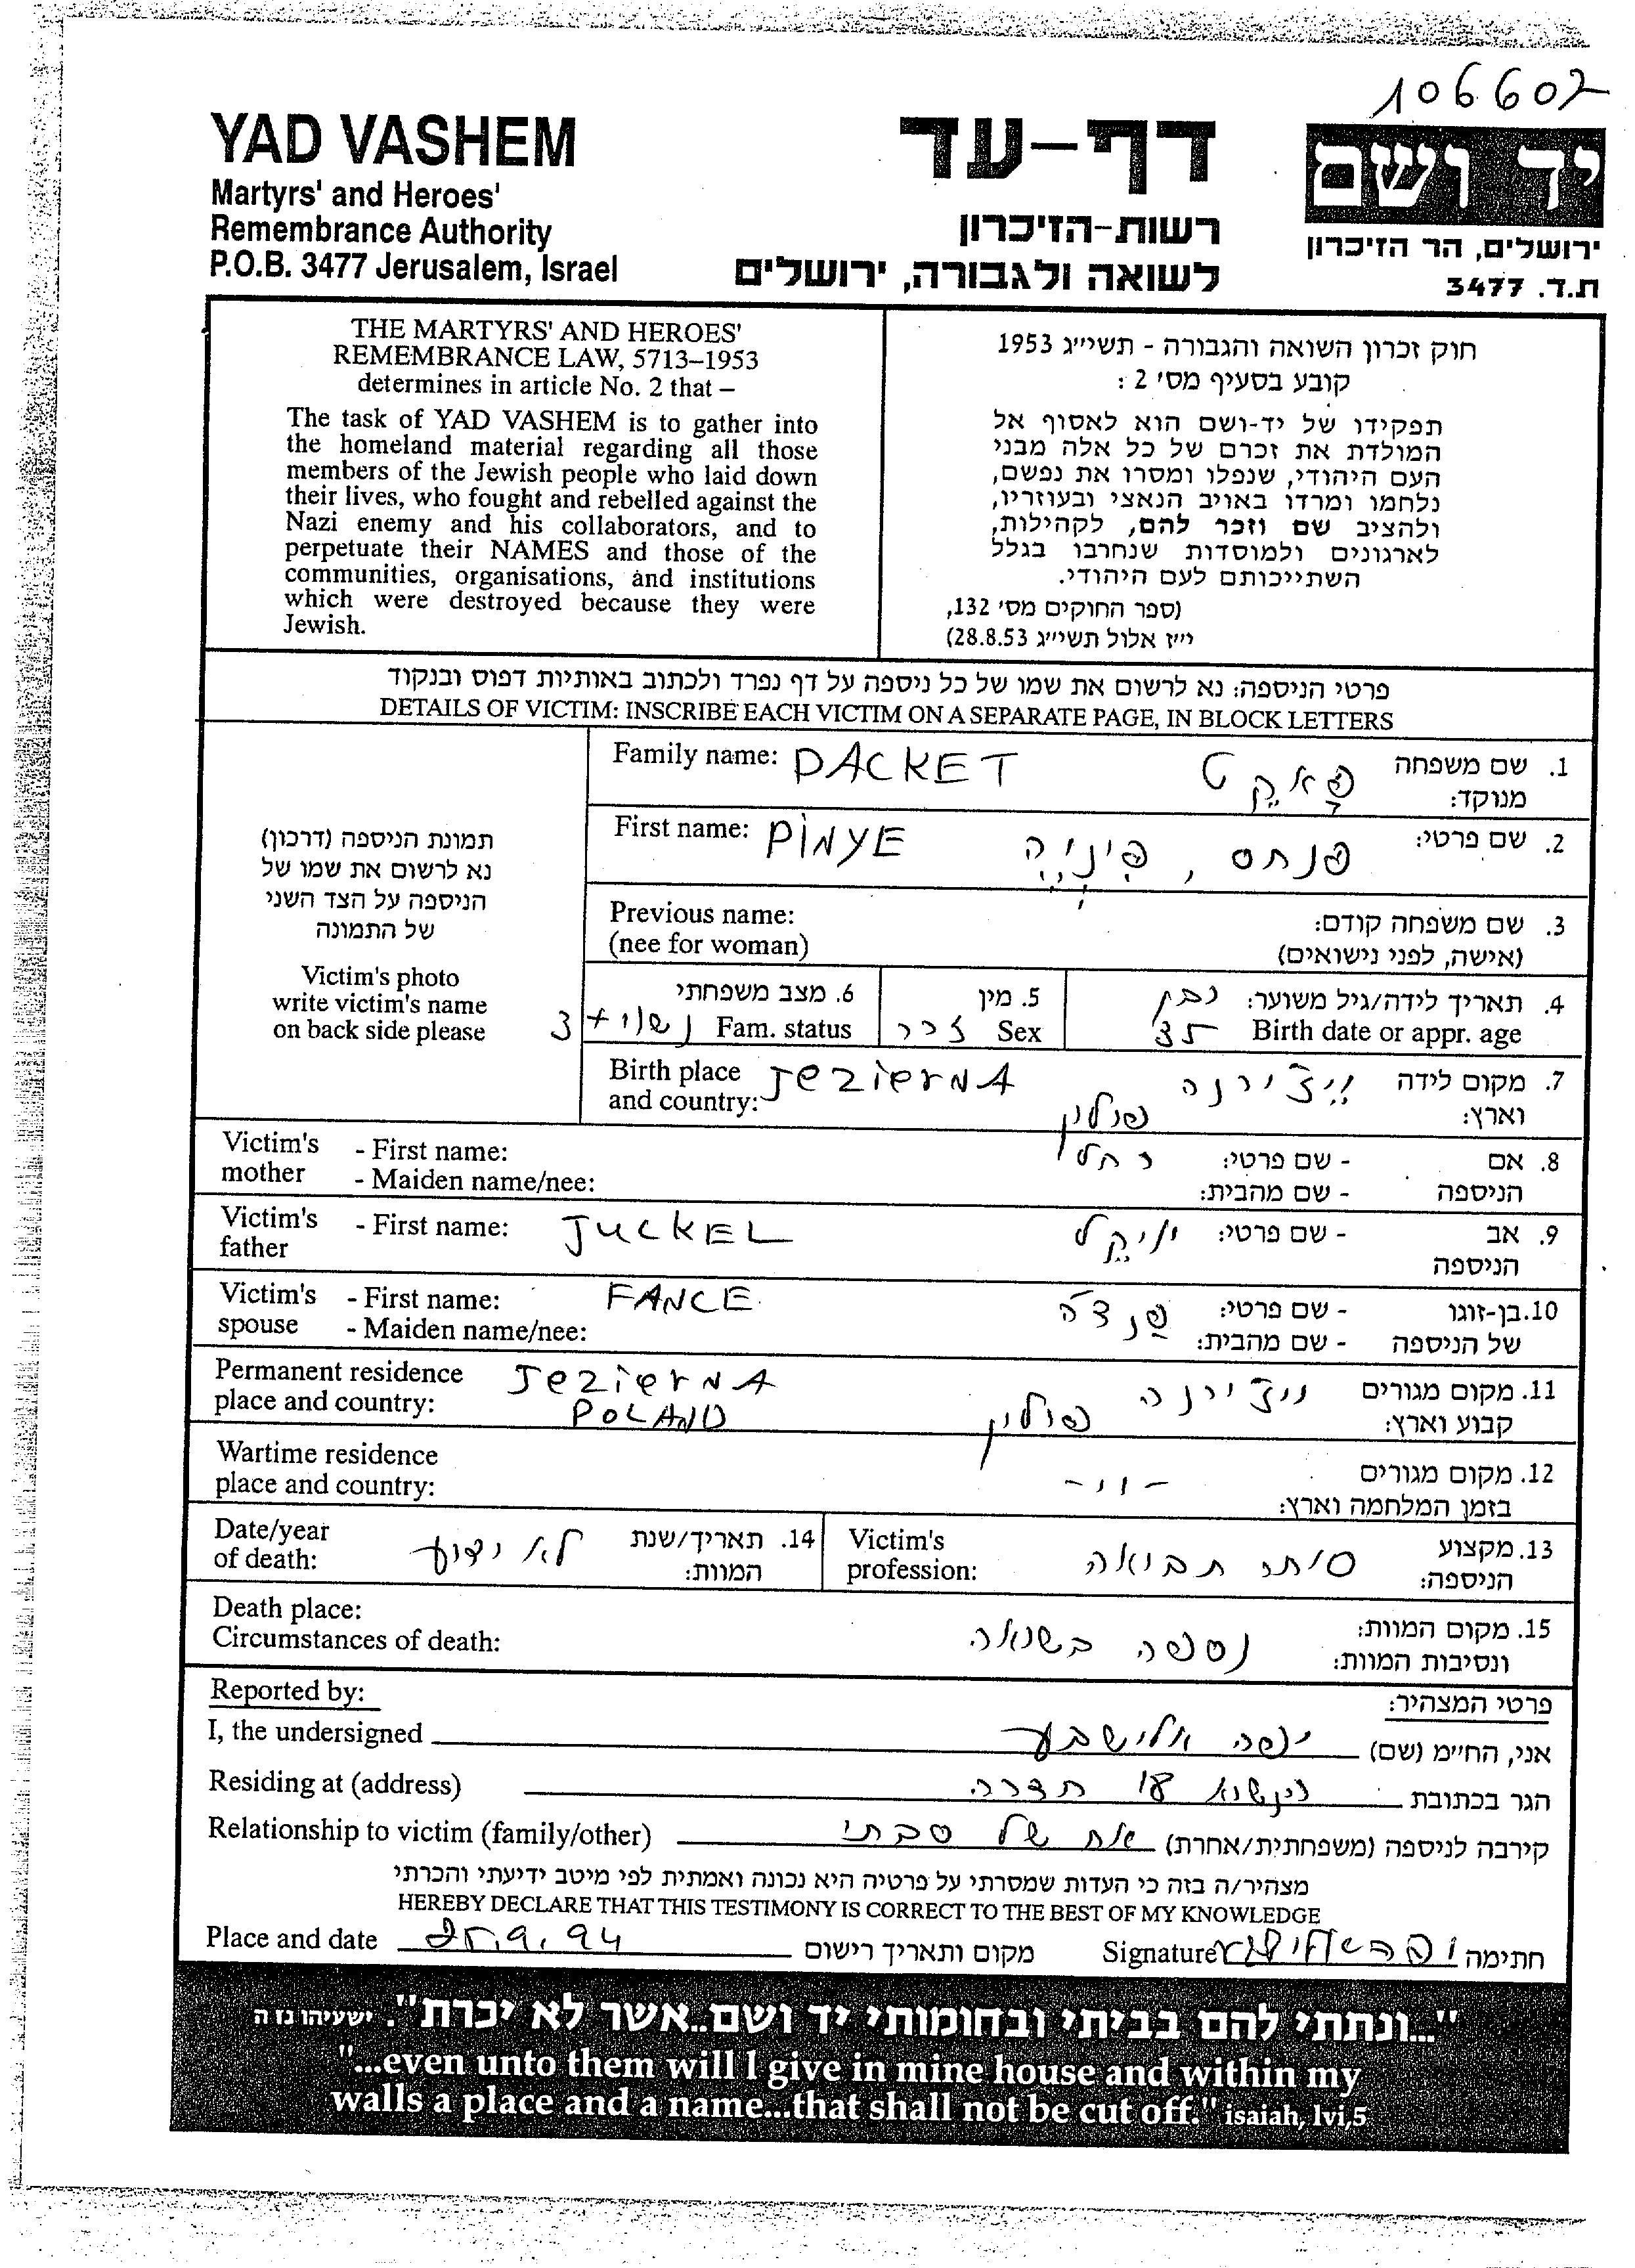 106602
YAD VASHEM
Martyrs' and Heroes'
Remembrance Authority
P.O.B. 3477 Jerusalem, Israel
דף-עד
רשות-הזיכרון
לשואה ולגבורה, ירושלים
יד ושם
ירושלים, הר הזיכרון
ת.ד. 3477
THE MARTYRS' AND HEROES'
REMEMBRANCE LAW, 5713–1953
determines in article No. 2 that –
The task of YAD VASHEM is to gather into
the homeland material regarding all those
members of the Jewish people who laid down
their lives, who fought and rebelled against the
Nazi enemy and his collaborators, and to
perpetuate their NAMES and those of the
communities, organisations, and institutions
which were destroyed because they were
Jewish.
חוק זכרון השואה והגבורה - תשי״ג 1953
קובע בסעיף מס' 2 :
תפקידו של יד-ושם הוא לאסוף אל
המולדת את זכרם של כל אלה מבני
העם היהודי, שנפלו ומסרו את נפשם,
נלחמו ומרדו באויב הנאצי ובעוזריו,
ולהציב שם וזכר להם, לקהילות,
לארגונים ולמוסדות שנחרבו בגלל
השתייכותם לעם היהודי.
(ספר החוקים מס' 132,
י״ז אלול תשי״ג 28.8.53)
פרטי הניספה: נא לרשום את שמו של כל ניספה על דף נפרד ולכתוב באותיות דפוס ובנקוד
DETAILS OF VICTIM: INSCRIBE EACH VICTIM ON A SEPARATE PAGE, IN BLOCK LETTERS
תמונת הניספה (דרכון)
נא לרשום את שמו של
הניספה על הצד השני
של התמונה
Victim's photo
write victim's name
on back side please
Family name: PACKET פאקט 1. שם משפחה
מנוקד:
First name: PINYE פנחס, פיניה 2. שם פרטי:
Previous name: 3. שם משפחה קודם:
(nee for woman) (אישה, לפני נישואים)
6. מצב משפחתי 5. מין 4. תאריך לידה/גיל משוער: כבן
Fam. status נשוי + 3 Sex זכר Birth date or appr. age 35
Birth place JEZIERNA יזירנה 7. מקום לידה
and country: פולין וארץ:
Victim's - First name: רחל - שם פרטי: 8. אם
mother - Maiden name/nee: - שם מהבית: הניספה
Victim's - First name: JUCKEL יוקל - שם פרטי: 9. אב
father הניספה
Victim's - First name: FANCE פנצה - שם פרטי: 10. בן-זוגו
spouse - Maiden name/nee: - שם מהבית: של הניספה
Permanent residence JEZIERNA יזירנה 11. מקום מגורים
place and country: POLAND פולין קבוע וארץ:
Wartime residence 12. מקום מגורים
place and country: -"- בזמן המלחמה וארץ:
Date/year לא ידוע 14. תאריך/שנת
of death: המוות:
Victim's סוחר תבואה 13. מקצוע
profession: הניספה:
Death place: 15. מקום המוות:
Circumstances of death: נספה בשואה ונסיבות המוות:
Reported by: פרטי המצהיר:
I, the undersigned יפה אלישבע אני, החי״מ (שם)
Residing at (address) חדרה הגר בכתובת
Relationship to victim (family/other) אח של סבתי קירבה לניספה (משפחתית/אחרת)
מצהיר/ה בזה כי העדות שמסרתי על פרטיה היא נכונה ואמתית לפי מיטב ידיעתי והכרתי
HEREBY DECLARE THAT THIS TESTIMONY IS CORRECT TO THE BEST OF MY KNOWLEDGE
Place and date 25.9.94 מקום ותאריך רישום Signature יפה אלישבע חתימה
"...ונתתי להם בביתי ובחומותי יד ושם..אשר לא יכרת". ישעיהו נו ה
"...even unto them will I give in mine house and within my
walls a place and a name...that shall not be cut off." isaiah, lvi,5